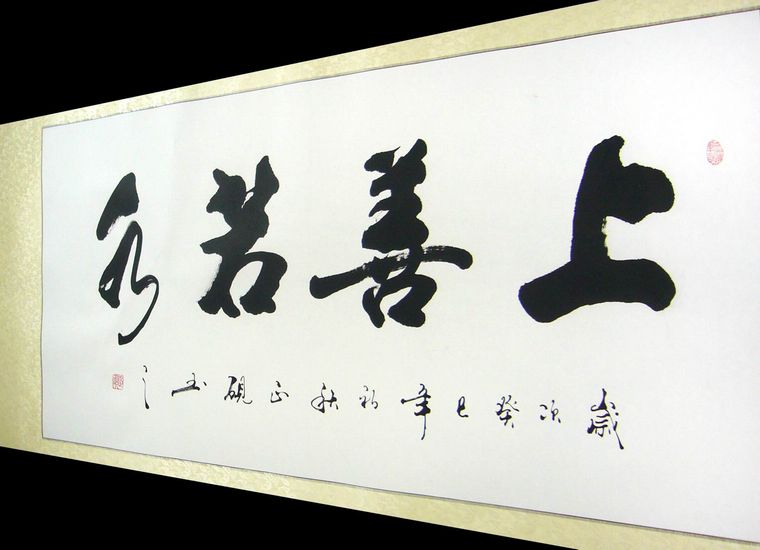 上善若水
歲次癸巳年初秋正硯書之